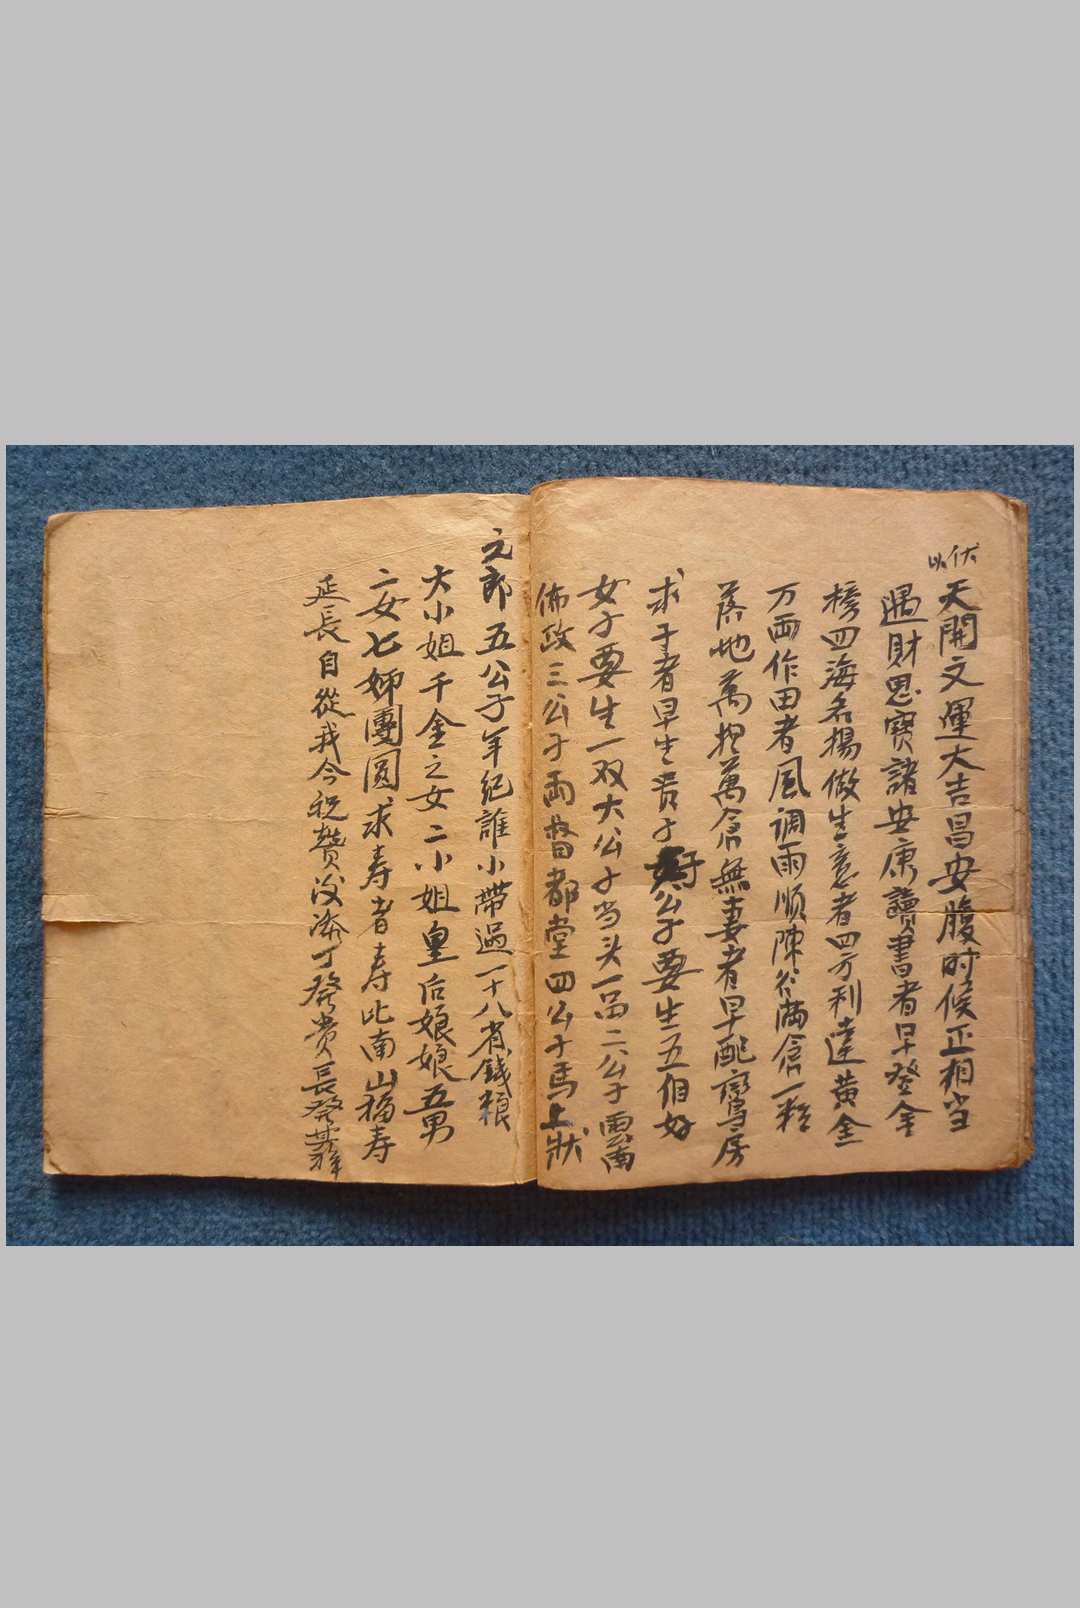 伏以
天開文運大吉昌安腹时候正相当
遇財恩寶諸安康讀書者早登金
榜四海名揚做生意者四方利達黄金
万両作田者風调雨順陳谷満倉一粒
落地萬担萬倉無妻者早配鸞房
求子者早生贵子公子要生五個好
女子要生一双大公子当头一品二公子雲南
佈政三公子両督都堂四公子馬上狀
元郎五公子年纪誰小帶过一十八省錢粮
大小姐千金之女二小姐皇后娘娘五男
二女七姊團圆求寿者寿比南山福寿
延長自從我今祝贊後添丁發贵長發其祥